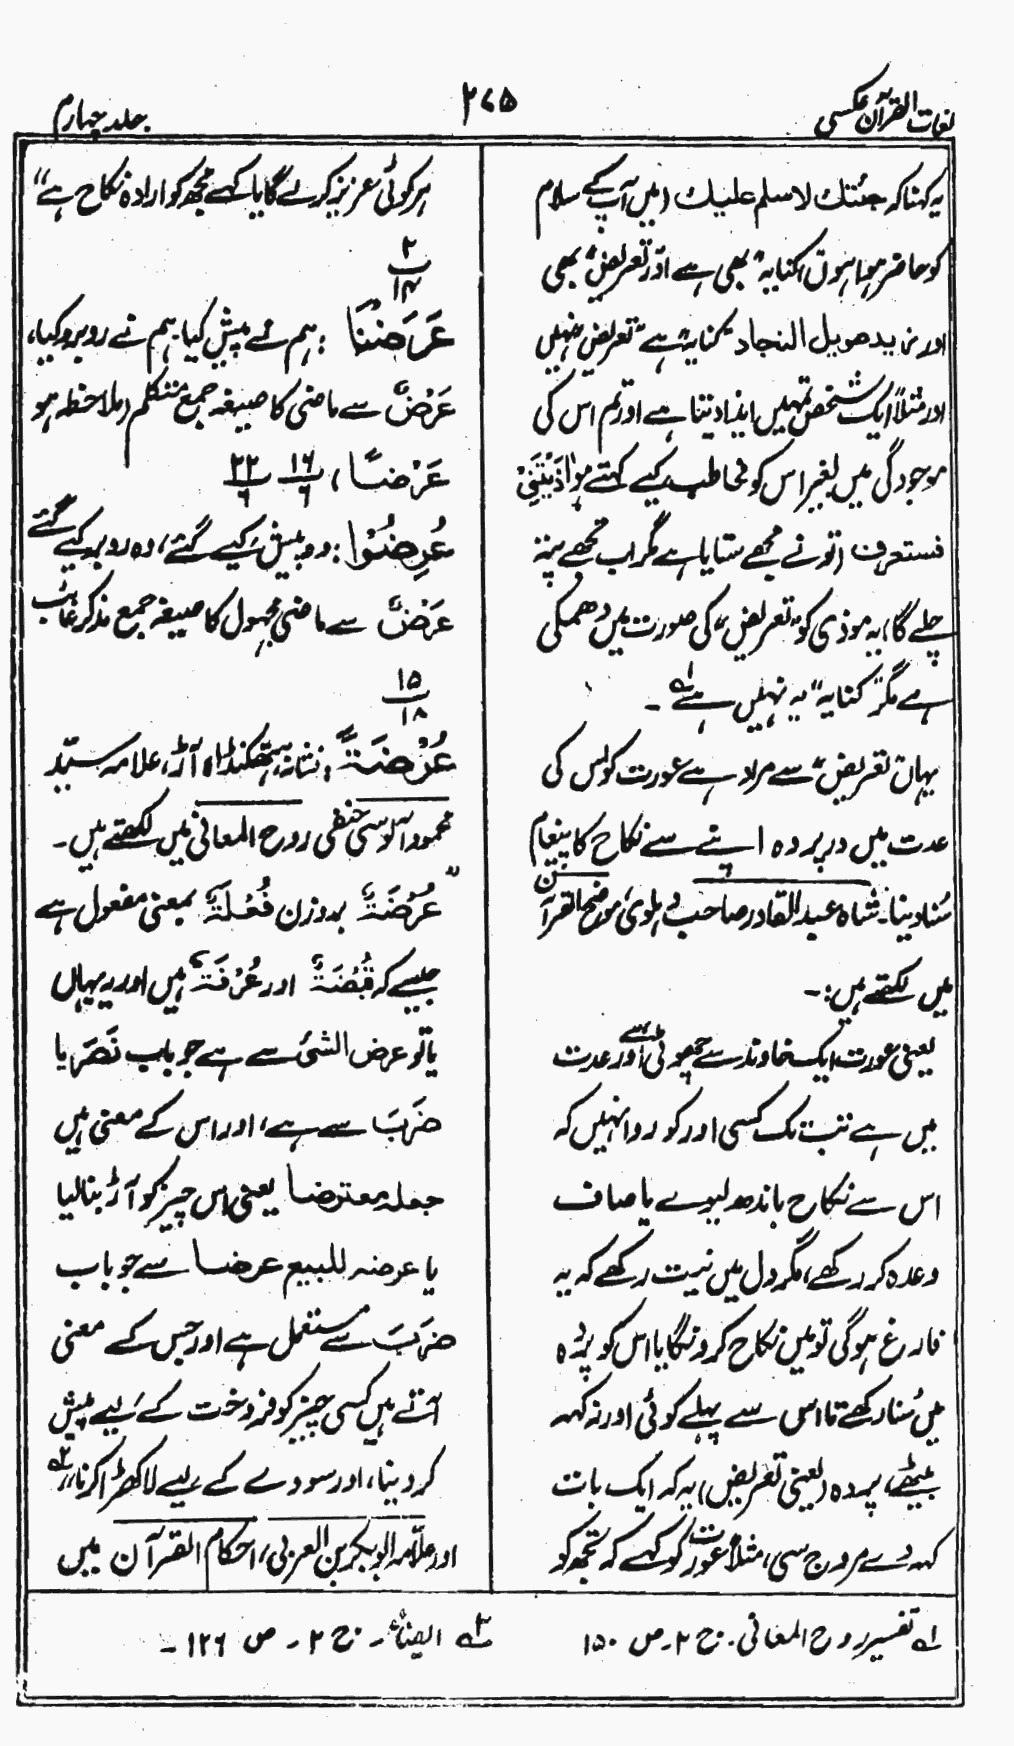 لغات القرآن عکسی
۲۶۵
جلد چہارم
یہ کہنا کہ جئتك لاسلم عليك (میں آپ کے سلام
کو حاضر ہوا ہوں) "کنایہ" بھی ہے اور "تعریض" بھی
اور زيد طويل النجاد "کنایہ" ہے "تعریض" نہیں
اور مثلاً ایک شخص تمہیں ایذا دیتا ہے اور تم اس کی
موجودگی میں بغیر اس کو مخاطب کیے کہتے ہو اٰذَيْتَنِيْ
فستعرف (تو نے مجھے ستایا ہے مگر اب تجھے پتہ
چلے گا) یہ موذی کو "تعریض" کی صورت میں دھمکی
ہے مگر "کنایہ" یہ نہیں ہے ۱؎ ۔
یہاں "تعریض" سے مراد ہے عورت کو اس کی
عدت میں در پردہ اپنے سے نکاح کا پیغام
سُنا دینا۔ شاہ عبدالقادر صاحب دہلویؒ موضح القرآن
میں لکھتے ہیں:-
یعنی عورت ایک خاوند سے چھوٹی ہے اور عدت
میں ہے تب تک کسی اور کو روا نہیں کہ
اس سے نکاح باندھ لیوے یا صاف
وعدہ کر رکھے، مگر دل میں نیت رکھے کہ یہ
فارغ ہوگی تو میں نکاح کرونگا یا اس کو پردہ
میں سُنا رکھے تا اس سے پہلے کوئی اور نہ کہہ
بیٹھے، پردہ (یعنی تعریض) یہ کہ ایک بات
کہہ دے مروج سی، مثلاً عورت کو کہے کہ تجھ کو
ہر کوئی عزیز کرے گا یا کہے مجھ کو ارادہ نکاح ہے"
۲
۱۴
عَرَضْنَا : ہم نے پیش کیا، ہم نے روبرو کیا،
عَرْضٌ سے ماضی کا صیغہ جمع متکلم (ملاحظہ ہو
عَرْضًا، ۱۶ ۲۲
۶ ۶
عُرِضُوْا : وہ پیش کیے گئے، وہ روبرو کیے گئے
عَرْضٌ سے ماضی مجہول کا صیغہ جمع مذکر غائب
۱۵
۱۸
عُرْضَةً : نشانہ، ہتھکنڈا، آڑ، علامہ سیّد
محمود آلوسی حنفی روح المعانی میں لکھتے ہیں۔
"عُرْضَةٌ بروزن فُعْلَةٌ بمعنی مفعول ہے
جیسے کہ قُبْضَةٌ اور غُرْفَةٌ ہیں اور یہ یہاں
یا تو عرض الشئ سے ہے جو باب نَصَرَ یا
ضَرَبَ سے ہے، اور اس کے معنی ہیں
جعله معترضا یعنی اس چیز کو آڑ بنا لیا
یا عرضه للبيع عرضا سے جو باب
ضَرَبَ سے مستعمل ہے اور جس کے معنی
آتے ہیں کسی چیز کو فروخت کے لیے پیش
کر دینا، اور سودے کے لیے لا کھڑا کرنا" ۲؎
اور علّامہ ابوبکر بن العربی، احکام القرآن میں
۱؎ تفسیر روح المعانی۔ ج ۲۔ ص ۱۵۰
۲؎ ایضاً۔ ج ۲۔ ص ۱۲۶ ۔